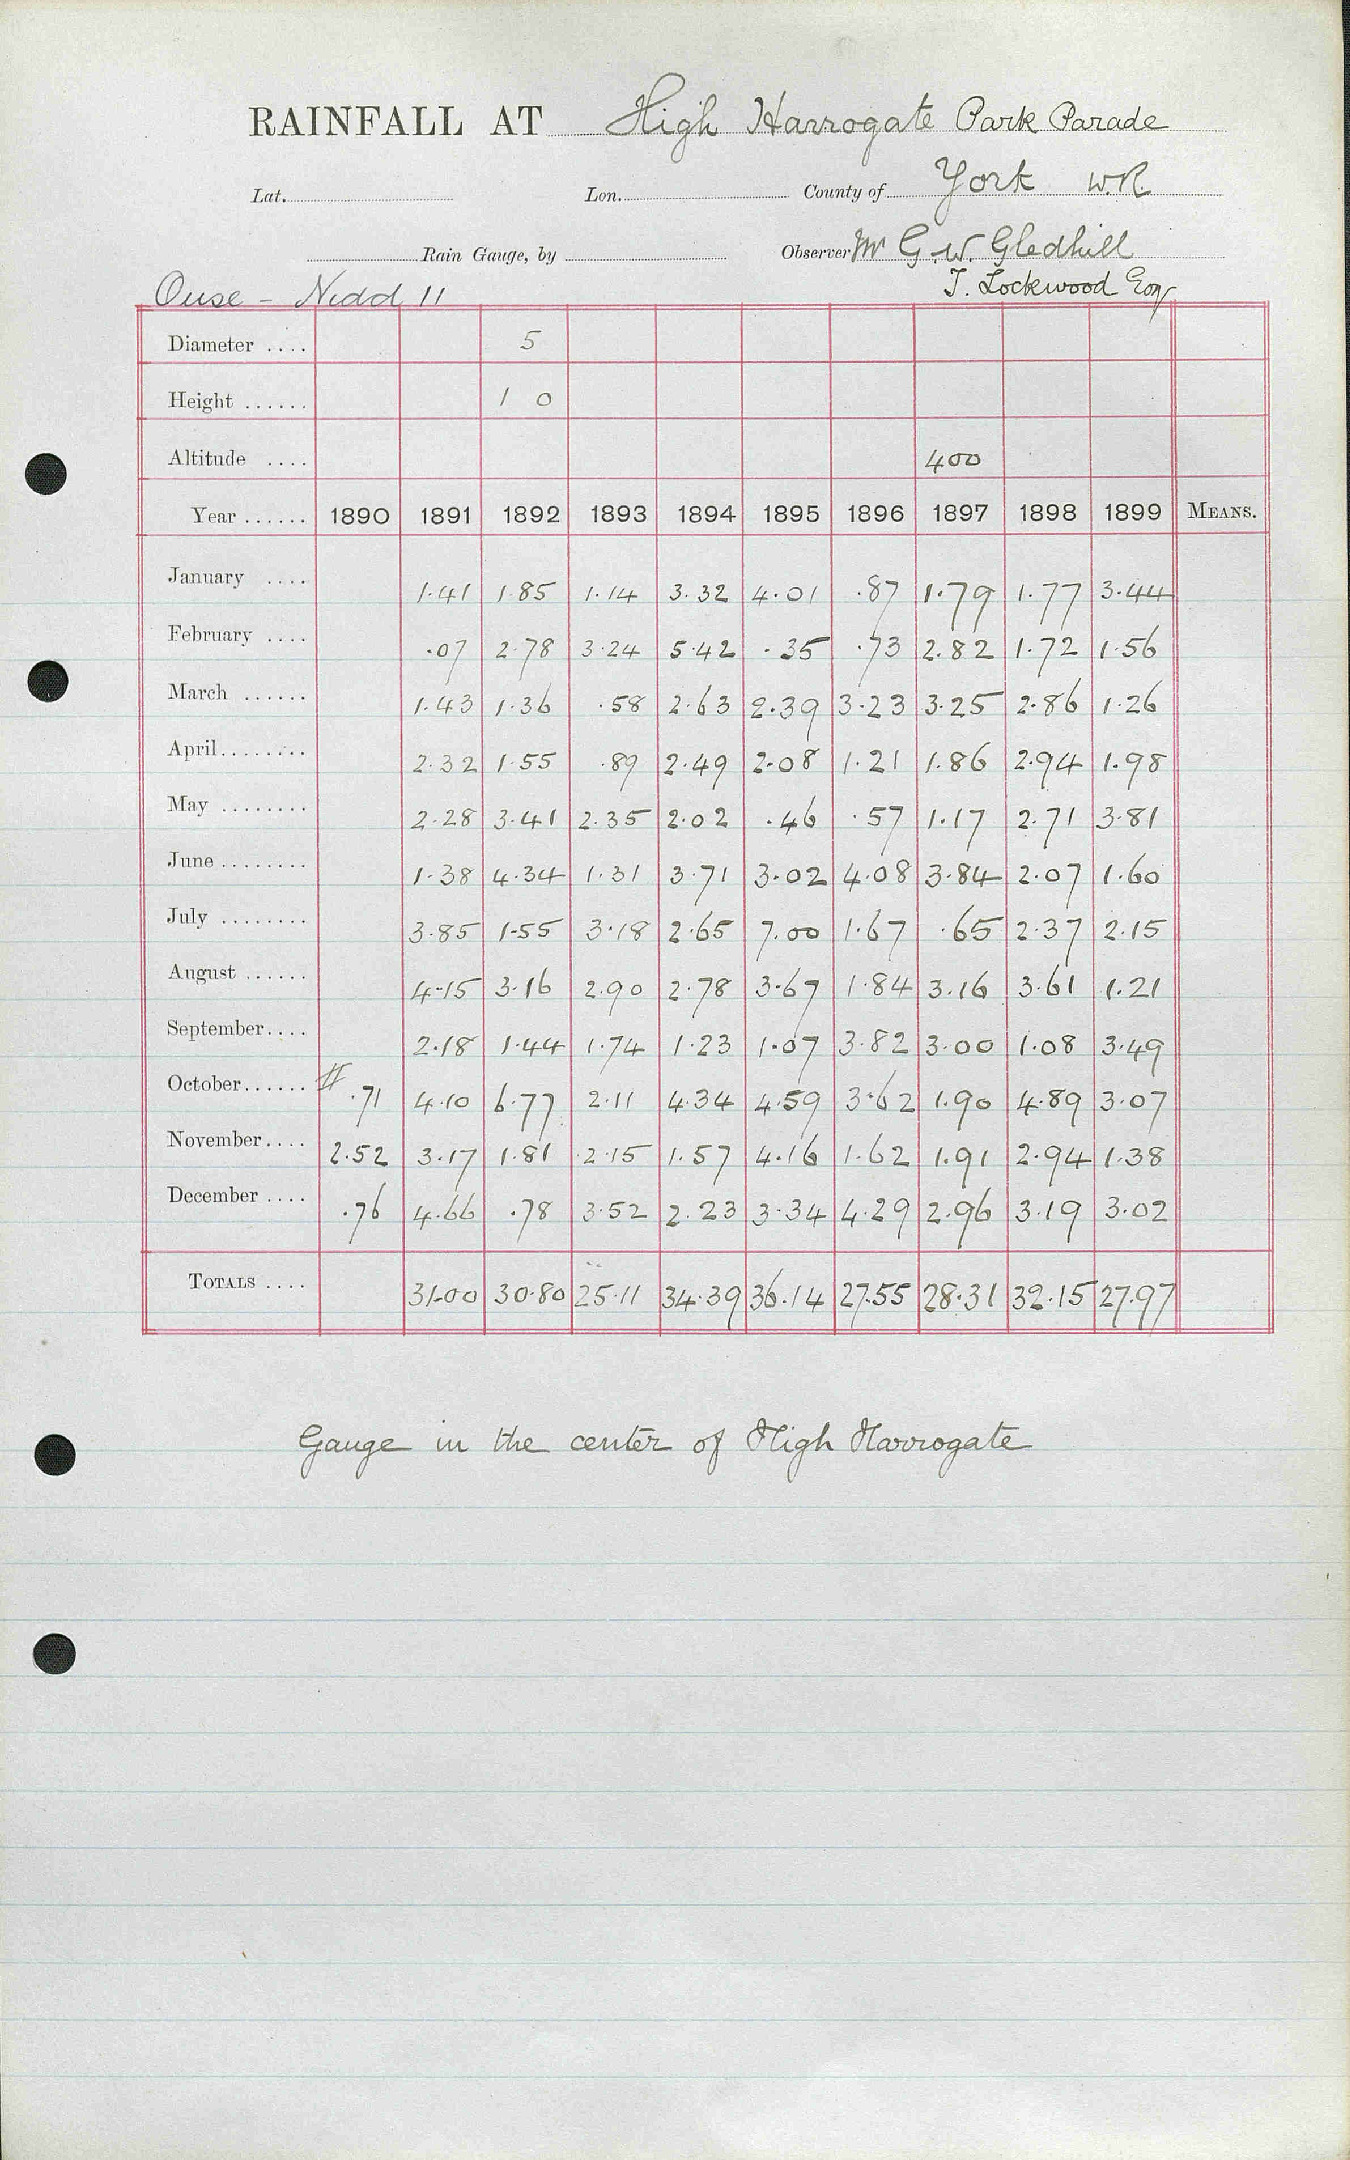 RAINFALL AT High Harrogate Park Parade
Lat. Lon. County of York W.R.
Rain Gauge, by Observer Mr G. W. Gledhill
Ouse - Nidd 11 J. Lockwood Esq
Diameter .... 5
Height ...... 1 0
Altitude .... 400
Year ...... 1890 1891 1892 1893 1894 1895 1896 1897 1898 1899 MEANS.
January .... 1.41 1.85 1.14 3.32 4.01 .87 1.79 1.77 3.44
February .... .07 2.78 3.24 5.42 .35 .73 2.82 1.72 1.56
March ...... 1.43 1.36 .58 2.63 2.39 3.23 3.25 2.86 1.26
April........ 2.32 1.55 .89 2.49 2.08 1.21 1.86 2.94 1.98
May ........ 2.28 3.41 2.35 2.02 .46 .57 1.17 2.71 3.81
June ........ 1.38 4.34 1.31 3.71 3.02 4.08 3.84 2.07 1.60
July ........ 3.85 1.55 3.18 2.65 7.00 1.67 .65 2.37 2.15
August ...... 4.15 3.16 2.90 2.78 3.67 1.84 3.16 3.61 1.21
September.... 2.18 1.44 1.74 1.23 1.07 3.82 3.00 1.08 3.49
October...... # .71 4.10 6.77 2.11 4.34 4.59 3.62 1.90 4.89 3.07
November.... 2.52 3.17 1.81 2.15 1.57 4.16 1.62 1.91 2.94 1.38
December .... .76 4.66 .78 3.52 2.23 3.34 4.29 2.96 3.19 3.02
TOTALS .... 31.00 30.80 25.11 34.39 36.14 27.55 28.31 32.15 27.97
Gauge in the center of High Harrogate